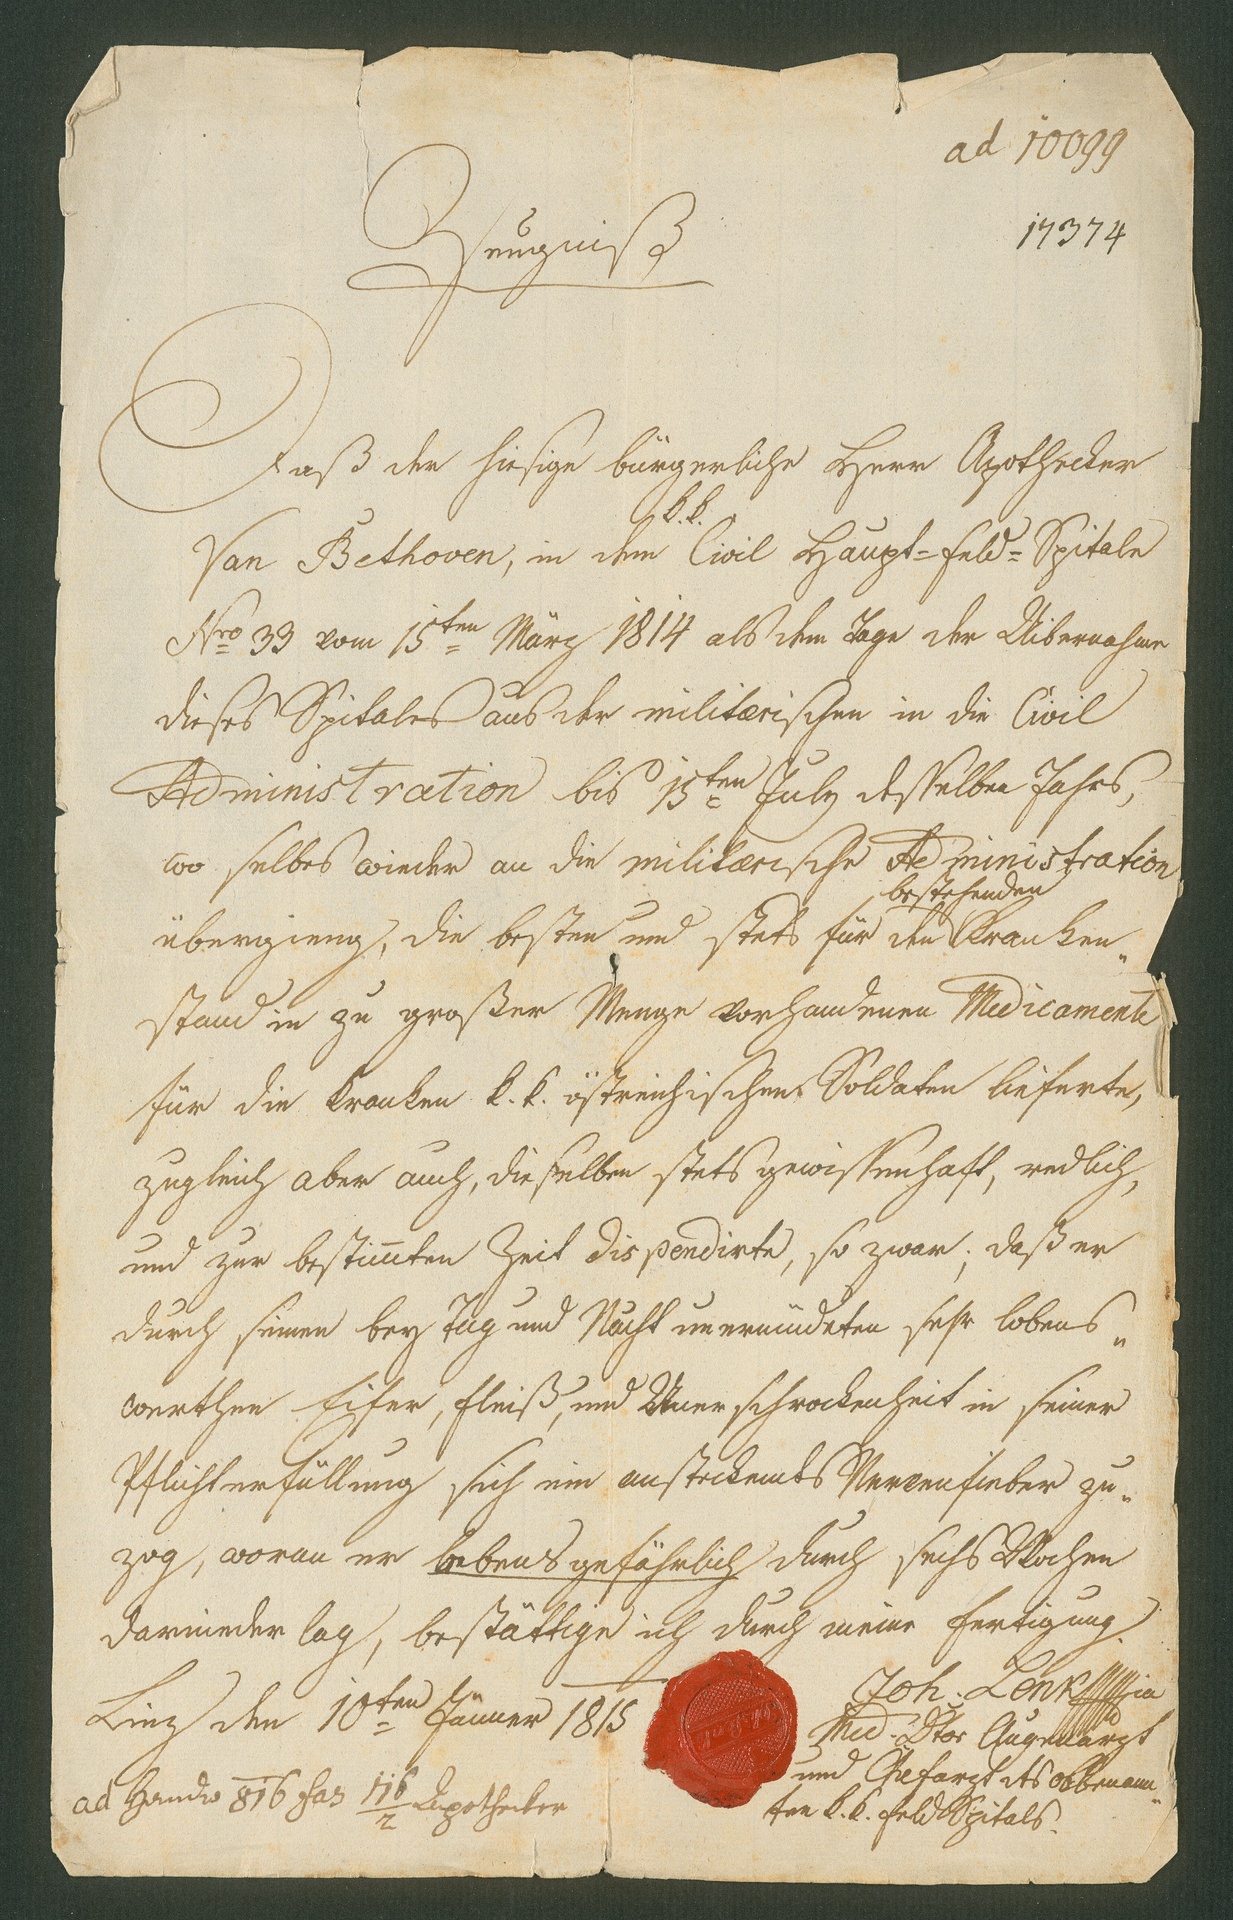 ad 10099
17374
Zeugniß
Daß der hiesige bürgerliche Herr Apothecker
k. k.
Van Bethoven, in dem Civil Haupt=Feld=Spitale
Nro 33 vom 15ten März 1814 als dem Tage der Uibernahme
dieses Spitales aus der militærischen in die Civil
Administration bis 15ten July desselben Jahrs,
wo selbes wieder an die militærische Administration
bestehenden
übergieng, die besten und stets für den Kranken„
stand in zu großer Menge vorhandenen Medicamente
für die kranken k. k. östreichischen Soldaten lieferte,
zugleich aber auch, dieselben stets gewissenhaft, redlich,
und zur bestim̅ten Zeit dispendirte, so zwar, daß er
durch seinen bey Tag und Nacht unermüdeten sehr lobens„
werthen Eifer, Fleiß, und Unerschrockenheit in seiner
Pflichterfüllung sich ein ansteckendes Nervenfieber zu„
zog, woran er lebensgefährlich durch sechs Wochen
darnieder lag, bestättige ich durch meine Fertigung.
Linz den 10ten Jänner 1815
Joh. Lenk
Med. Dtor Augenarzt
und Chefarzt des obbenann„
ten k. k. Feld Spitals.
ad 816 116/2 Apothecker